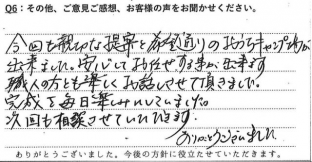 Q6：その他、ご意見ご感想、お客様の声をお聞かせください。
今回も親切な提案と希望通りのおうちキャンプ場が
出来ました。安心しておまかせする事が出来ます
職人の方とも楽しくお話しさせて頂きました。
完成を毎日楽しみにしていました。
次回も相談させていただきます。
ありがとうございました
ありがとうございました。今後の方針に役立たせていただきます。